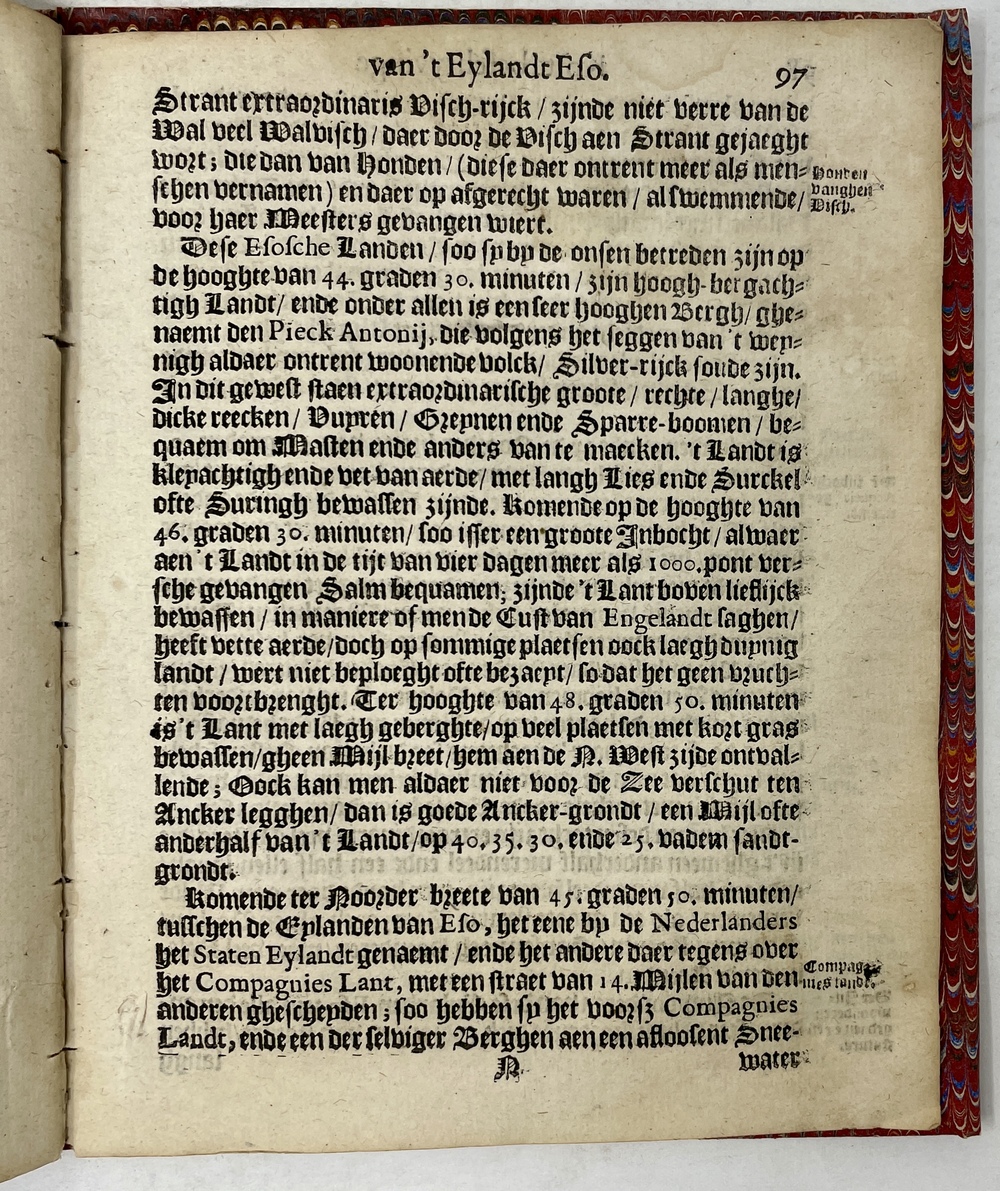 van 't Eylandt Eſo.
97
Strant extraordinaris Viſch-rijck / zijnde niet verre van de
Wal veel Walviſch / daer door de Viſch aen Strant gejaeght
wort; die dan van Honden / (dieſe daer ontrent meer als men-
ſchen vernamen) en daer op afgerecht waren / al ſwemmende /
voor haer Meeſters gevangen wiert.
Honden
vanghen
Viſch.
Deſe Eſoſche Landen / ſoo ſy by de onſen betreden zijn op
de hooghte van 44. graden 30. minuten / zijn hoogh-bergach-
tigh Landt / ende onder allen is een ſeer hooghen Bergh / ghe-
naemt den Pieck Antonij, die volgens het ſeggen van 't wey-
nigh aldaer ontrent woonende volck / Silver-rijck ſoude zijn.
In dit geweſt ſtaen extraordinariſche groote / rechte / langhe /
dicke reecken / Vuyren / Greynen ende Sparre-boomen / be-
quaem om Maſten ende anders van te maecken. 't Landt is
kleyachtigh ende vet van aerde / met langh Lies ende Surckel
ofte Suringh bewaſſen zijnde. Komende op de hooghte van
46. graden 30. minuten / ſoo iſſer een groote Inbocht / alwaer
aen 't Landt in de tijt van vier dagen meer als 1000. pont ver-
ſche gevangen Salm bequamen; zijnde 't Lant boven lieflijck
bewaſſen / in maniere of men de Cuſt van Engelandt ſaghen /
heeft vette aerde / doch op ſommige plaetſen oock laegh duynig
landt / wert niet beploeght ofte bezaeyt / ſo dat het geen vruch-
ten voortbrenght. Ter hooghte van 48. graden 50. minuten
is 't Lant met laegh geberghte / op veel plaetſen met kort gras
bewaſſen / gheen Mijl breet / hem aen de N. Weſt zijde ontval-
lende; Oock kan men aldaer niet voor de Zee verſchut ten
Ancker legghen / dan is goede Ancker-grondt / een Mijl ofte
anderhalf van 't Landt / op 40. 35. 30. ende 25. vadem ſandt-
grondt.
Komende ter Noorder breete van 45. graden 50. minuten /
tuſſchen de Eylanden van Eſo, het eene by de Nederlanders
het Staten Eylandt genaemt / ende het andere daer tegens over
het Compagnies Lant, met een ſtraet van 14. Mijlen van den
anderen gheſcheyden; ſoo hebben ſy het voorſz Compagnies
Landt, ende een der ſelviger Berghen aen een aflooſent Snee-
Compag-
nies landt.
N
water